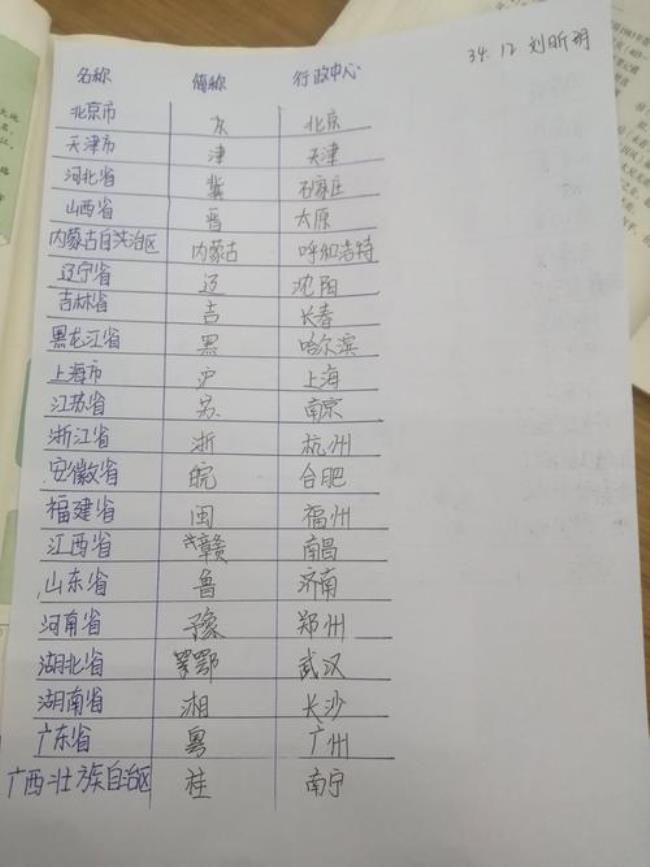 34. 12 刘昕玥
名称 简称 行政中心
北京市 京 北京
天津市 津 天津
河北省 冀 石家庄
山西省 晋 太原
内蒙古自治区 内蒙古 呼和浩特
辽宁省 辽 沈阳
吉林省 吉 长春
黑龙江省 黑 哈尔滨
上海市 沪 上海
江苏省 苏 南京
浙江省 浙 杭州
安徽省 皖 合肥
福建省 闽 福州
江西省 赣 南昌
山东省 鲁 济南
河南省 豫 郑州
湖北省 鄂 武汉
湖南省 湘 长沙
广东省 粤 广州
广西壮族自治区 桂 南宁